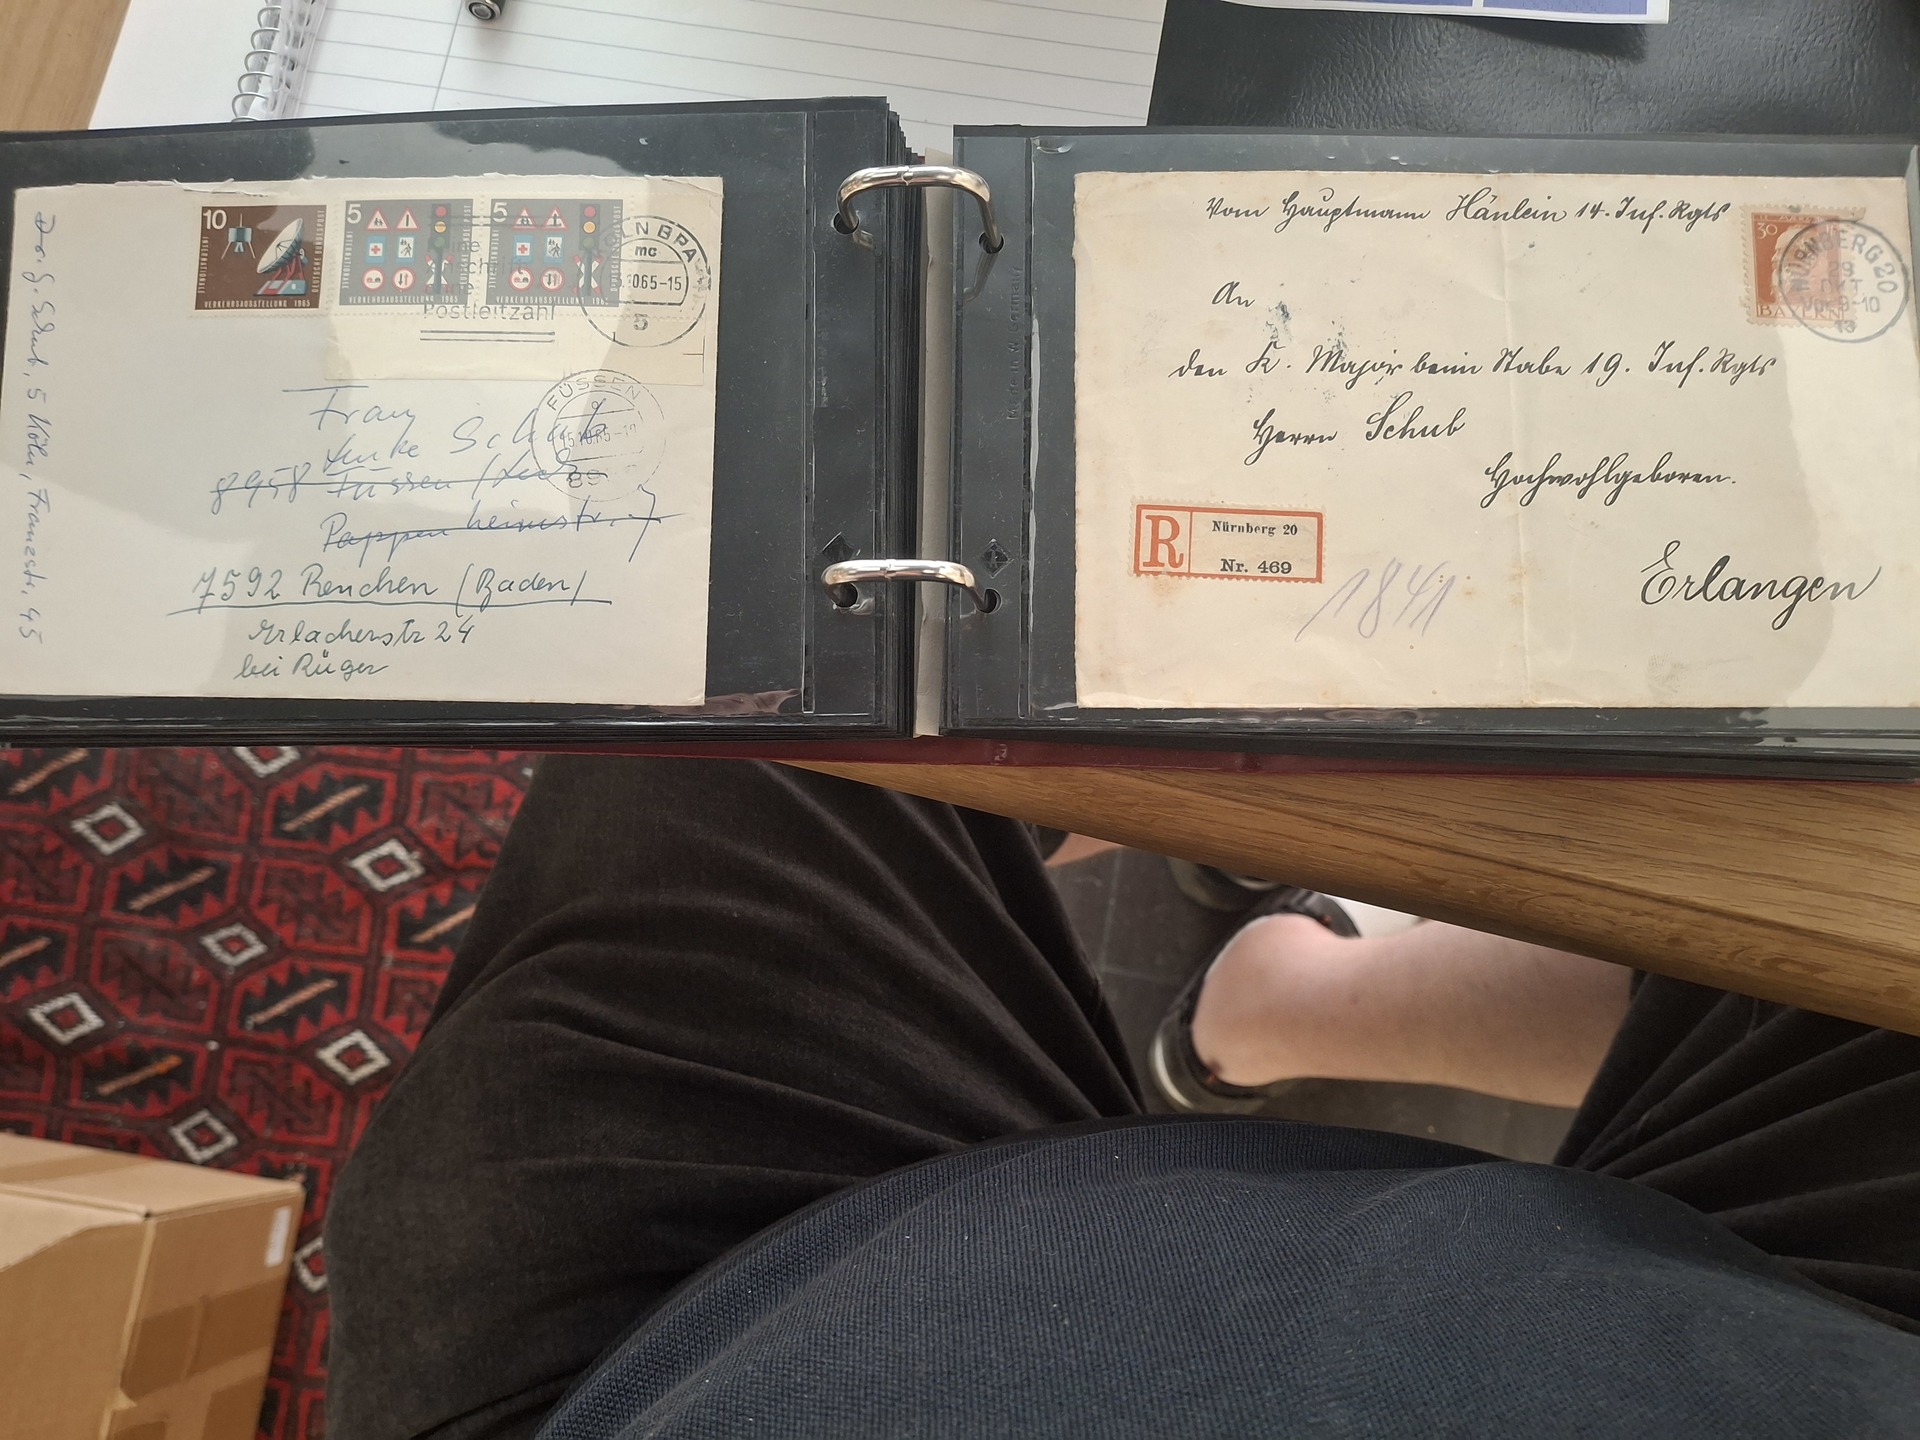 10
INTERNATIONALE
DEUTSCHE BUNDESPOST
VERKEHRSAUSSTELLUNG 1965
5
INTERNATIONALE
VERKEHRSAUSSTELLUNG 1965
5
INTERNATIONALE
DEUTSCHE BUNDESPOST
VERKEHRSAUSSTELLUNG 1965
Postleitzahl
BPA
mc
1065-15
5
FÜSSEN
a
15.10.65-19
89
Schub, 5 Köln, Franzstr. 45
Frau
Schub
8958 Füssen /
Pappenheimstr. 7
7592 Renchen (Baden)
Erlacherstr 24
bei Rüger
Vom Hauptmann Hänlein 14. Inf. Rgts
An
den K. Major beim Stabe 19. Inf. Rgts
Herrn Schub
Hochwohlgeboren.
Erlangen
30
BAYERN
NÜRNBERG 20
OKT
9-10
13
R
Nürnberg 20
Nr. 469
1841